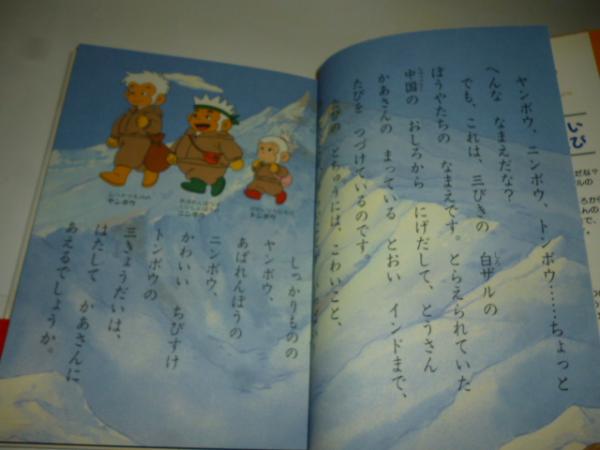 ヤンボウ、ニンボウ、トンボウ……ちょっと
へんな なまえだな?
でも、これは、三びきの 白ザルの
ぼうやたちの なまえです。とらえられていた
中国の おしろから にげだして、とうさん
かあさんの まっている とおい インドまで、
たびを つづけているのです。
たびの とちゅうには、こわいこと、
ヤンボウ
ニンボウ
トンボウ
しっかりものの
ヤンボウ、
あばれんぼうの
ニンボウ、
かわいい ちびすけ
トンボウの
三きょうだいは、
はたして かあさんに
あえるでしょうか。
いび